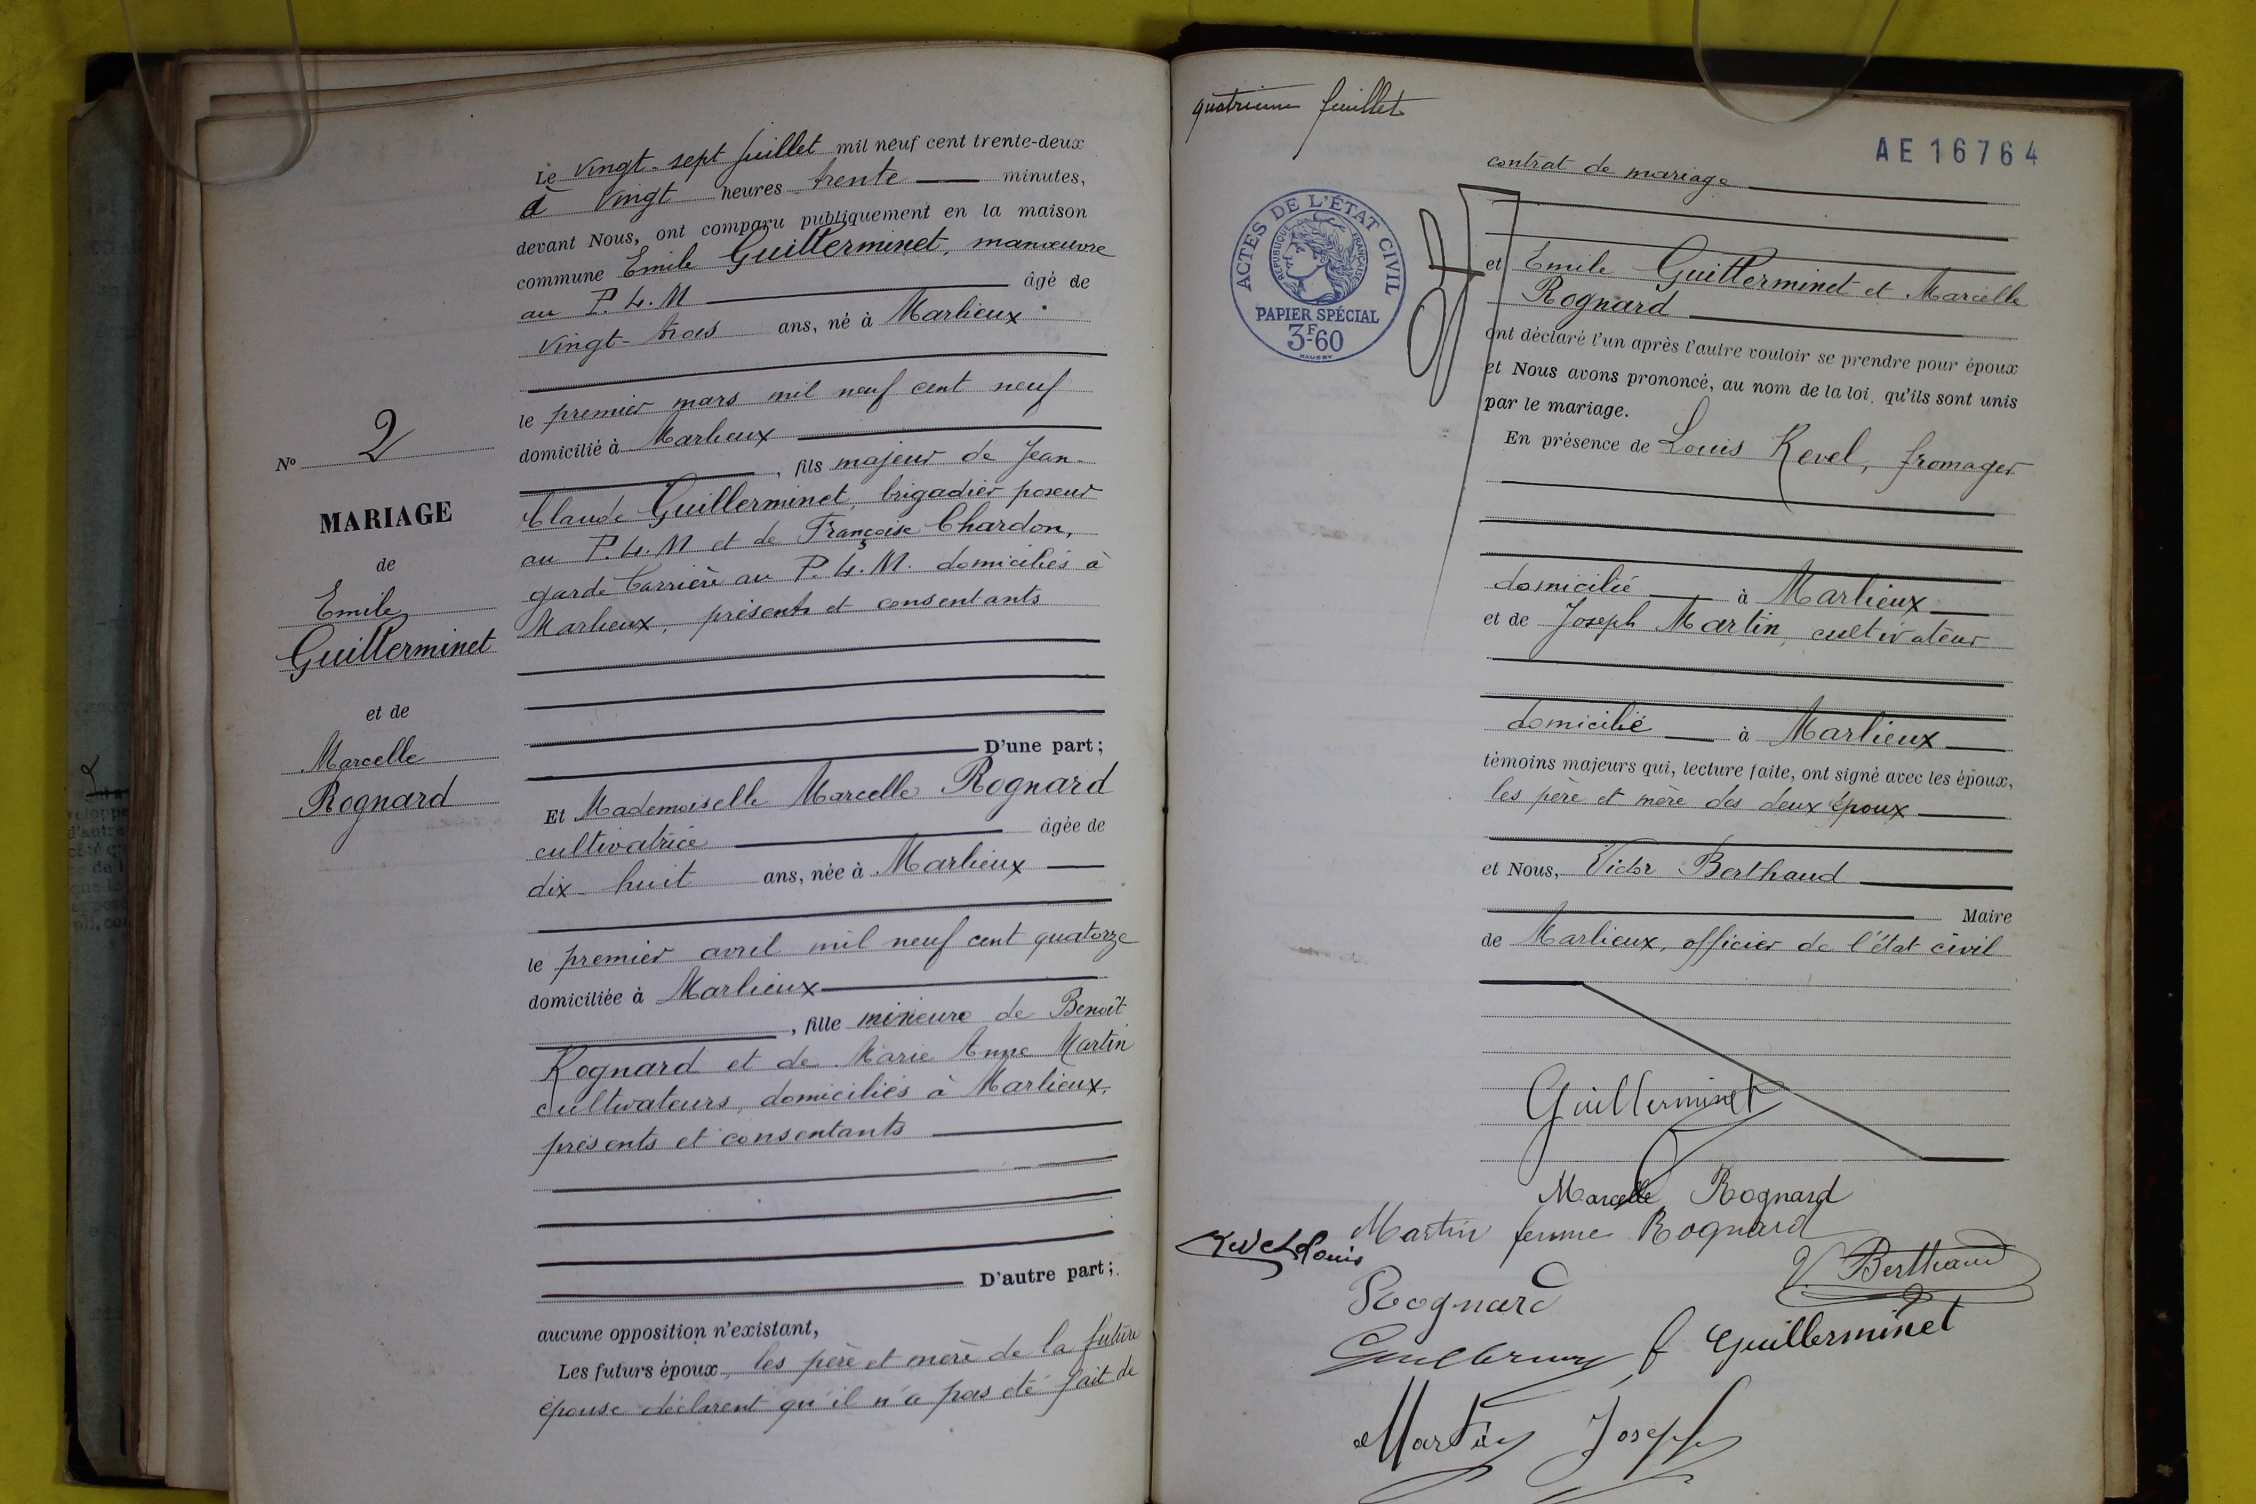 Le vingt-sept juillet mil neuf cent trente-deux
à vingt heures trente minutes,
devant Nous, ont comparu publiquement en la maison
commune Emile Guillerminet, manœuvre
au P.L.M âgé de
vingt-trois ans, né à Marlieux
le premier mars mil neuf cent neuf
domicilié à Marlieux
, fils majeur de Jean-
Claude Guillerminet, brigadier poseur
au P.L.M et de Françoise Chardon,
garde barrière au P.L.M. domiciliés à
Marlieux, présents et consentants
D'une part;
Nº 2
MARIAGE
de
Emile
Guillerminet
et de
Marcelle
Rognard
Et Mademoiselle Marcelle Rognard
cultivatrice âgée de
dix-huit ans, née à Marlieux
le premier avril mil neuf cent quatorze
domiciliée à Marlieux
, fille mineure de Benoît
Rognard et de Marie Anne Martin
cultivateurs, domiciliés à Marlieux,
présents et consentants
D'autre part;
aucune opposition n'existant,
Les futurs époux, les père et mère de la future
épouse déclarent qu'il n'a pas été fait de
quatrième feuillet
AE16764
contrat de mariage
ACTES DE L'ÉTAT CIVIL
RÉPUBLIQUE FRANÇAISE
PAPIER SPÉCIAL
3F60
et Emile Guillerminet et Marcelle
Rognard
ont déclaré l'un après l'autre vouloir se prendre pour époux
et Nous avons prononcé, au nom de la loi, qu'ils sont unis
par le mariage.
En présence de Louis Revel, fromager
domicilié à Marlieux
et de Joseph Martin, cultivateur
domicilié à Marlieux
témoins majeurs qui, lecture faite, ont signé avec les époux,
les père et mère des deux époux
et Nous, Victor Berthaud
Maire
de Marlieux, officier de l'état civil
Guillerminet
Marcelle Rognard
Martin femme Rognard
Revel Louis
V. Berthaud
Rognard
f Guillerminet
Martin Joseph